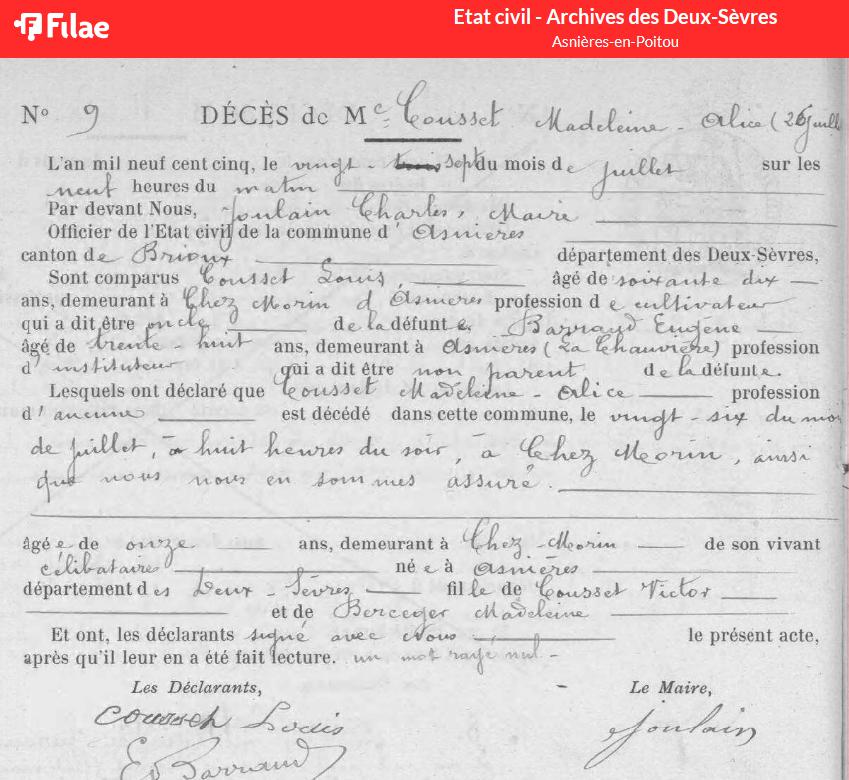 Filae
Etat civil - Archives des Deux-Sèvres
Asnières-en-Poitou
N° 9 DÉCÈS de Mc Cousset Madeleine - Alice (26 juill
L'an mil neuf cent cinq, le vingt - trois sept du mois de juillet sur les
neuf heures du matin
Par devant Nous, Joulain Charles, Maire
Officier de l'Etat civil de la commune d' Asnières
canton de Brioux département des Deux-Sèvres,
Sont comparus Cousset Louis, âgé de soixante dix
ans, demeurant à Chez Morin d'Asnières profession de cultivateur
qui a dit être oncle de la défunte. Barraud Eugène
âgé de trente - huit ans, demeurant à Asnières (La Chauvière) profession
d'instituteur qui a dit être non parent de la défunte.
Lesquels ont déclaré que Cousset Madeleine - Alice profession
d'aucune est décédé dans cette commune, le vingt - six du moi
de juillet, à huit heures du soir, à Chez Morin, ainsi
que nous nous en sommes assuré.
âgée de onze ans, demeurant à Chez - Morin de son vivant
célibataire née à Asnières
département des Deux - Sèvres fille de Cousset Victor
et de Berceger Madeleine
Et ont, les déclarants signé avec Nous le présent acte,
après qu'il leur en a été fait lecture. un mot rayé nul -
Les Déclarants, Le Maire,
Cousset Louis Joulain
Ed Barraud